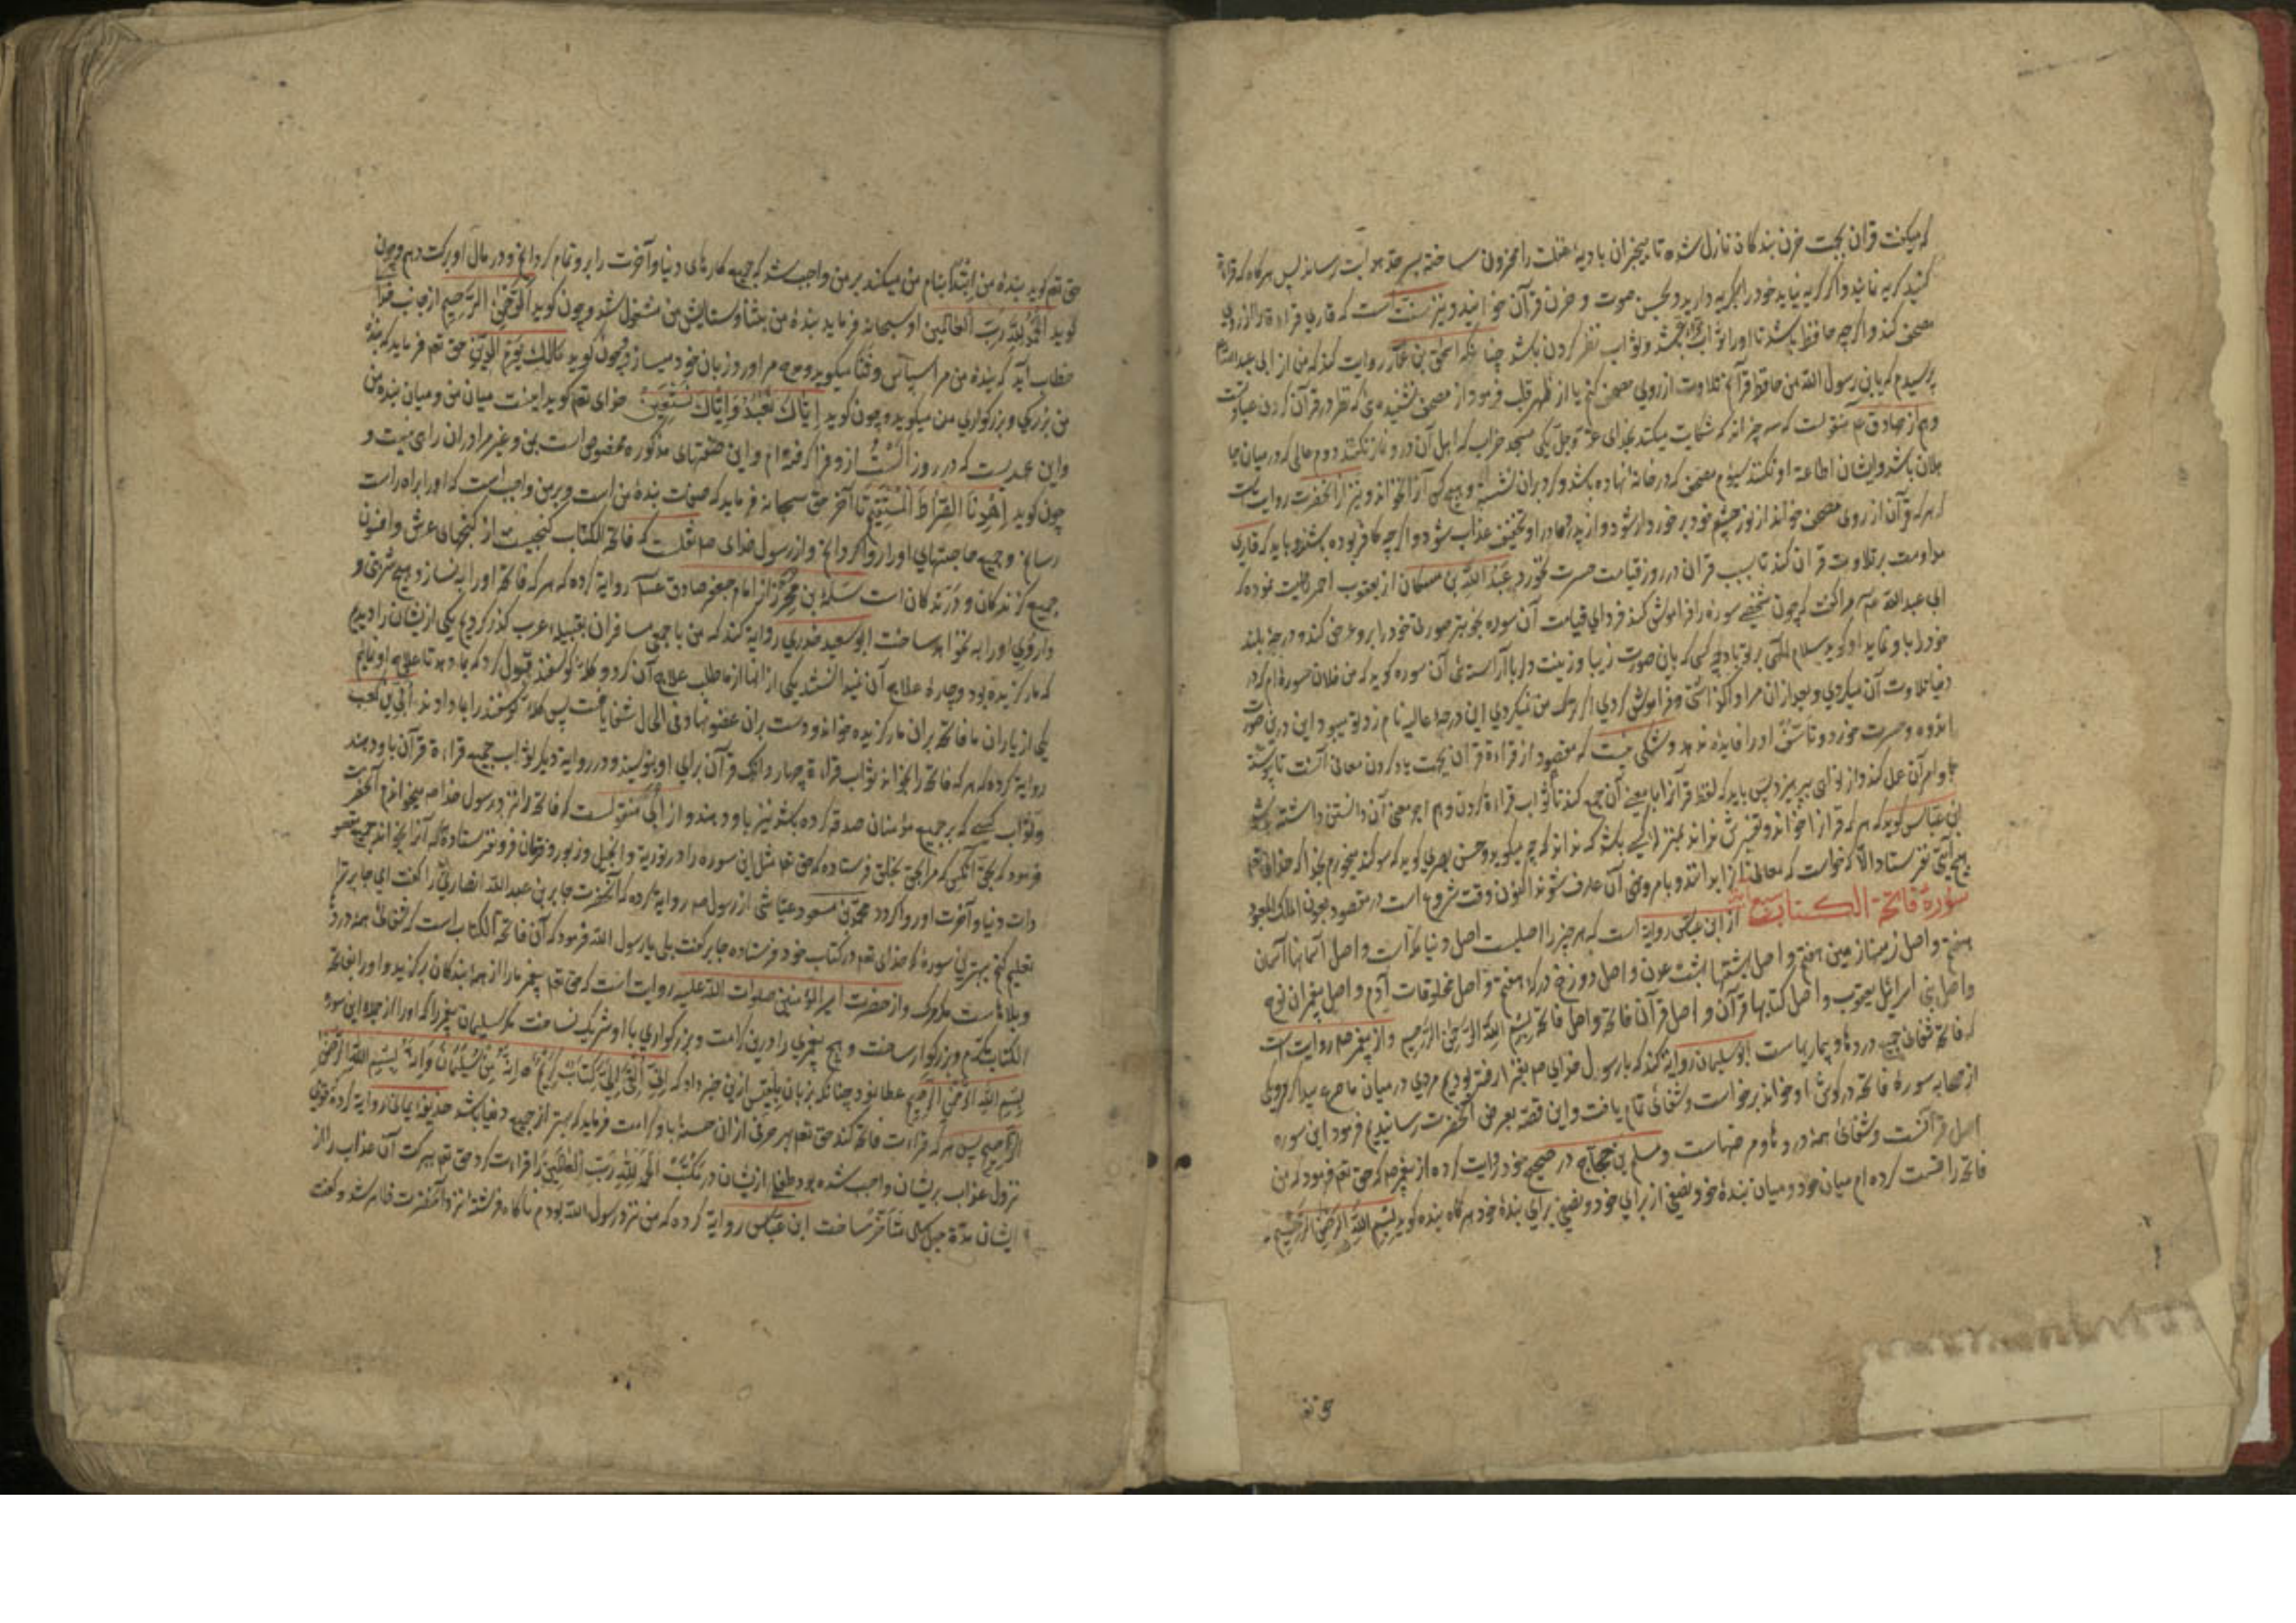 که میگفت قرآن بجهت حزن بندگان نازل شده تا بیخبران بادیهٔ غفلت را محزون ساخته بسرحد هدایت رساند پس هرگاه که قراءة
کنید گریه نمائید و اگر گریه نیاید خود را بگریه دارید و بحسن صوت و حزن قرآن خوانید و نیز سنت است که قاری قراءة را از روی
مصحف کند و اگرچه حافظ باشد تا او را ثواب قراءة باشد و ثواب نظر کردن باشد چنانکه اسحق بن عمار روایت کند که من از ابی عبدالله
پرسیدم که یابن رسول الله من حافظ قرآنم تلاوت از روی مصحف کنم یا از ظهر قلب فرمود از مصحف نشنیدهٔ که نظر در قرآن کردن عبادتست
و هم از صادق ع منقولست که سه چیزاند که شکایت میکنند بخدای عز و جل یکی مسجد خراب که اهل آن درو نماز نکنند دوم عالمی که در میان جا
هلان باشد و ایشان اطاعة او نکنند سیوم مصحف که در خانهٔ نهاده باشد و گرد بران نشسته و هیچ کس آنرا نخواند و نیز از آنحضرت روایت است
که هرکه قرآن از روی مصحف خواند از نور چشم خود برخوردار شود و از پدر و مادر او تخفیف عذاب شود و اگرچه کافر بوده باشند و باید که قاری
مداومت بر تلاوت قرآن کند تا بسبب قرآن در روز قیامت حسرت نخورد عبدالله بن مسکان از یعقوب احمر روایت نموده که
ابی عبدالله ع مرا گفت که چون شخصی سورهٔ را فراموش کند فردای قیامت آن سوره بخوبتر صورتی خود را برو عرض کند و درجهٔ بلند
خود را باو نماید او گوید سلام الله بر تو باد چه کسی که باین صورت زیبا و زینت دلربا آراستهٔ آن سوره گوید که من فلان سوره‌ام که در
دنیا تلاوت آن میکردی و بعد از آن مرا واگذاشتی و فراموش کردی اگر ترک من نمیکردی این درجهٔ عالیه نام زد تو میبود و این درین صورت
اندوه و حسرت خورد و تأسف او را فایده ندهد و شکی نیست که مقصود از قراءة قرآن بجهت یاد کردن معانی آنست تا پیوسته
باوامر آن عمل کند و از نواهی بپرهیزد پس باید که لفظ قرآن را با معنی آن جمع کند تا ثواب قراءة کردن و هم اجر معنی آن دانستن داشته باشد
ابن عباس گوید که هرکه قرآن را خواند و تفسیرش نداند بمنزلهٔ کسی باشد که نداند که چه میگوید و حسن بصری گوید که سوگند میخورم بخدا که خدای تع
هیچ آیتی نفرستاد الا که خواست که معانی آنرا بدانند و بامر و نهی آن عارف شوند اکنون وقت شروع است در مقصود بعون الملک المعبود
سورة فاتحة الکتاب سبع آیات از ابن عباس روایة است که هر چیز را اصلیست اصل دنیا مکه است و اصل آسمانها آسمان
هفتم و اصل زمینها زمین هفتم و اصل بهشتها بهشت عدن و اصل دوزخ درکهٔ هفتم و اصل مخلوقات آدم و اصل پیغمبران نوح
و اصل بنی اسرائیل یعقوب و اصل کتابها قرآن و اصل قرآن فاتحه و اصل فاتحه بسم الله الرحمن الرحیم و از پیغمبر صلعم روایت است
که فاتحه شفای جمیع دردها و بیماریهاست ابو سلیمان روایة کند که با رسول خدای صم بغزا رفته بودیم مردی در میان ما صرع پیدا کرد یکی
از صحابه سورهٔ فاتحه در گوش او خواند برخواست و شفای تام یافت و این قصه بعرض آنحضرت رسانیدیم فرمود این سوره
اصل قرآنست و شفای همه دردها و مرضهاست و مسلم بن حجاج در صحیح خود روایت کرده از پیغمبر صلعم که حق تعم فرمود که من
فاتحه را قسمت کرده‌ام میان خود و میان بندهٔ خود نصفی از برای خود و نصفی برای بندهٔ خود هرگاه بنده گوید بسم الله الرحمن الرحیم
حق تعم گوید بندهٔ من ابتدا بنام من میکند بر من واجب شد که جمیع کارهای دنیا و آخرت را برو تمام گردانم و در مال او برکت دهم و چون
گوید الحمد لله رب العالمین او سبحانه فرماید بندهٔ من بثنا و ستایش من مشغول شد و چون گوید الرحمن الرحیم از جانب خدا
خطاب آید که بندهٔ من مرا سپاس و ثنا میگوید و مدح مرا ورد زبان خود میسازد و چون گوید مالک یوم الدین حق تعم فرماید که بندهٔ
من بزرگی و بزرگواری من میگوید و چون گوید ایاک نعبد و ایاک نستعین خدای تعم گوید اینست میان من و میان بندهٔ من
و این عهدیست که در روز الست ازو فرا گرفته‌ام و این صفتهای مذکوره مخصوص است بمن و غیر مرا در آن راهی نیست و
چون گوید اهدنا الصراط المستقیم تا آخر حق سبحانه فرماید که صفت بندهٔ من است و بر من واجب است که او را براه راست
رسانم و جمیع حاجتهای او را روا گردانم و از رسول خدای صم نقلست که فاتحة الکتاب گنجیست از گنجهای عرش و افسون
جمیع گزندگان و درندگان است سلمة بن محرز از امام جعفر صادق ع روایة کرده که هرکه فاتحه او را به نسازد هیچ شربتی و
داروی او را به نخواهد ساخت ابو سعید خدری روایة کند که من با جمعی مسافران بقبیلهٔ عرب گذر کردیم یکی ازیشان را دیدیم
که مار گزیده بود و چاره علاج آن نمیدانستند یکی از آنها از ما طلب علاج آن کرد و گلهٔ گوسفند قبول کرد که بما دهد تا علاج او نمائیم
یکی از یاران ما فاتحه بران مار گزیده خواند و دست بران عضو نهاد فی الحال شفا یافت پس گلهٔ گوسفند را بما دادند ابی بن کعب
روایة کرده که هرکه فاتحه را بخواند ثواب قراءة چهار دانک قرآن برای او بنویسند و در روایة دیگر ثواب جمیع قراءة قرآن باو دهند
و ثواب کسی که بر جمیع مؤمنان صدقه کرده باشد نیز باو دهند و از ابی منقولست که فاتحه را نزد رسول خدا صم میخواندم آنحضرت
فرمود که بحق آنکس که مرا بحق بخلق فرستاده که حق تعا مثل این سوره را در توریة و انجیل و زبور و فرقان فرو نفرستاده که آنرا بخواند جمیع مقصو
دات دنیا و آخرت او روا گردد محمد بن مسعود عیاشی از رسول صم روایة کرده که آنحضرت جابر بن عبدالله انصاری را گفت ای جابر ترا
تعلیم کنم بهترین سورهٔ که خدای تعم در کتاب خود فرستاده جابر گفت بلی یا رسول الله فرمود که آن فاتحة الکتاب است که شفای همه درد
و بلاهاست مگر مرگ و از حضرت امیر المؤمنین صلوات الله علیه روایت است که حق تعم پیغمبر ما را از همه بندگان برگزید و او را بفاتحة
الکتاب مکرم و بزرگوار ساخت و هیچ پیغمبری را درین کرامت و بزرگواری با او شریک نساخت مگر سلیمان پیغمبر را که او را از جمله این سوره
بسم الله الرحمن الرحیم عطا نمود چنانکه بزبان بلقیس ازین خبر داد که انی القی الی کتاب کریم انه من سلیمان و انه بسم الله الرحمن
الرحیم پس هرکه قراءت فاتحه کند حق تعم بهر حرفی از آن حسنهٔ باو کرامت فرماید که بهتر از جمیع دنیا باشد حذیفهٔ یمانی روایة کرده قومی
نزول عذاب بریشان واجب شده بود طفلی ازیشان در مکتب الحمد لله رب العالمین را قراءت کرد حق تعم ببرکت آن عذاب را از
ایشان مدة چهل سال متأخر ساخت ابن عباس روایة کرده که من نزد رسول الله بودم ناگاه فرشتهٔ نزد آنحضرت ظاهر شد و گفت